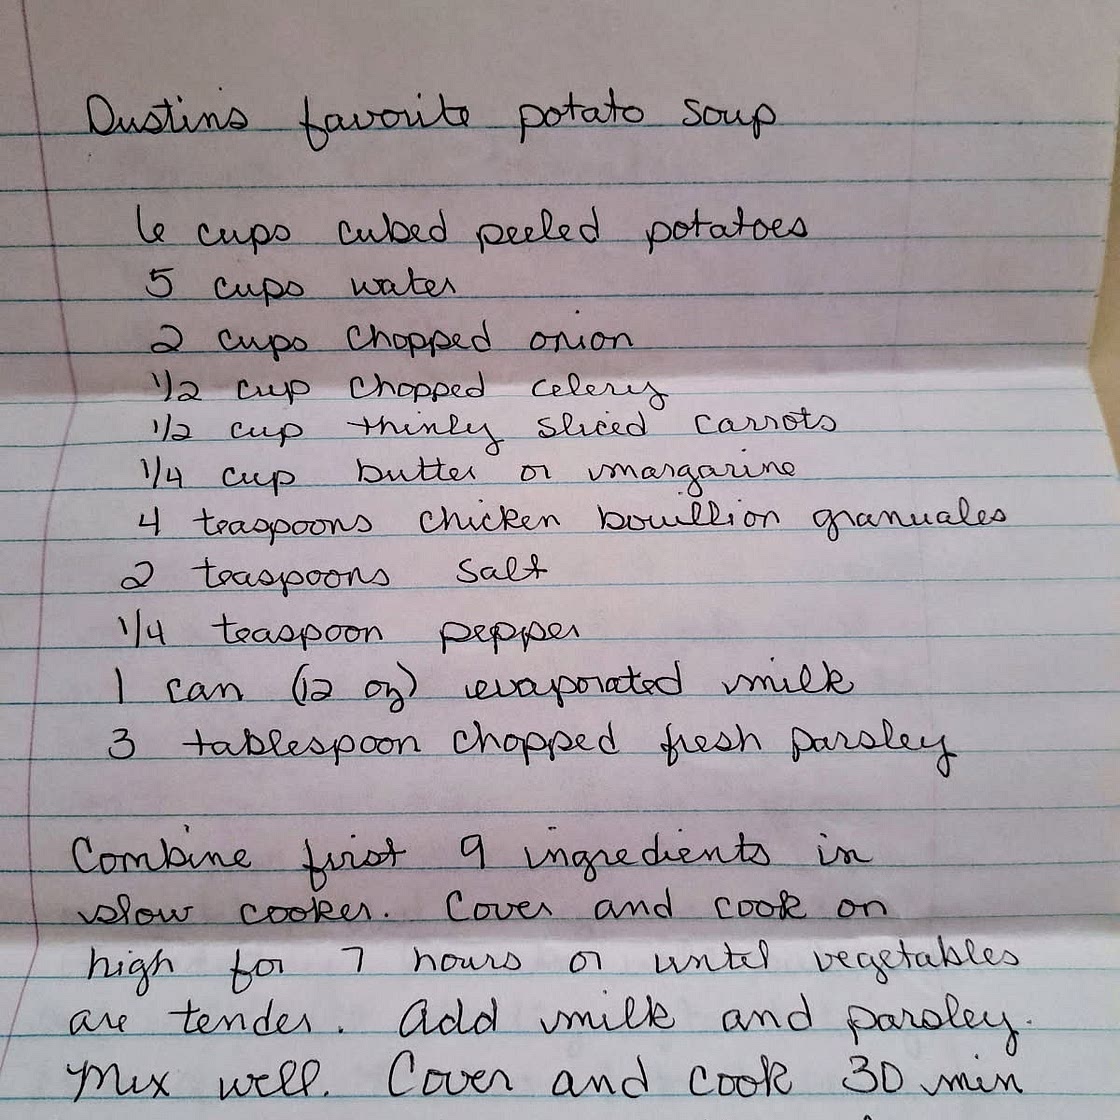 Dustins favorite potato soup
6 cups cubed peeled potatoes
5 cups water
2 cups chopped onion
1/2 cup chopped celery
1/2 cup thinly sliced carrots
1/4 cup butter or margarine
4 teaspoons chicken bouillion granuales
2 teaspoons salt
1/4 teaspoon pepper
1 can (12 oz) evaporated milk
3 tablespoon chopped fresh parsley
Combine first 9 ingredients in
slow cooker. Cover and cook on
high for 7 hours or until vegetables
are tender. Add milk and parsley.
Mix well. Cover and cook 30 min